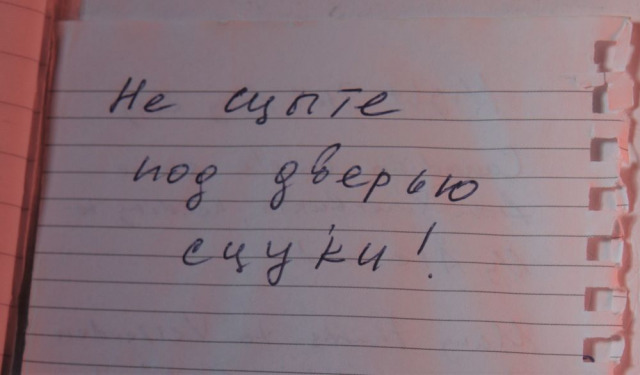 Не сцыте
под дверью
сцуки!